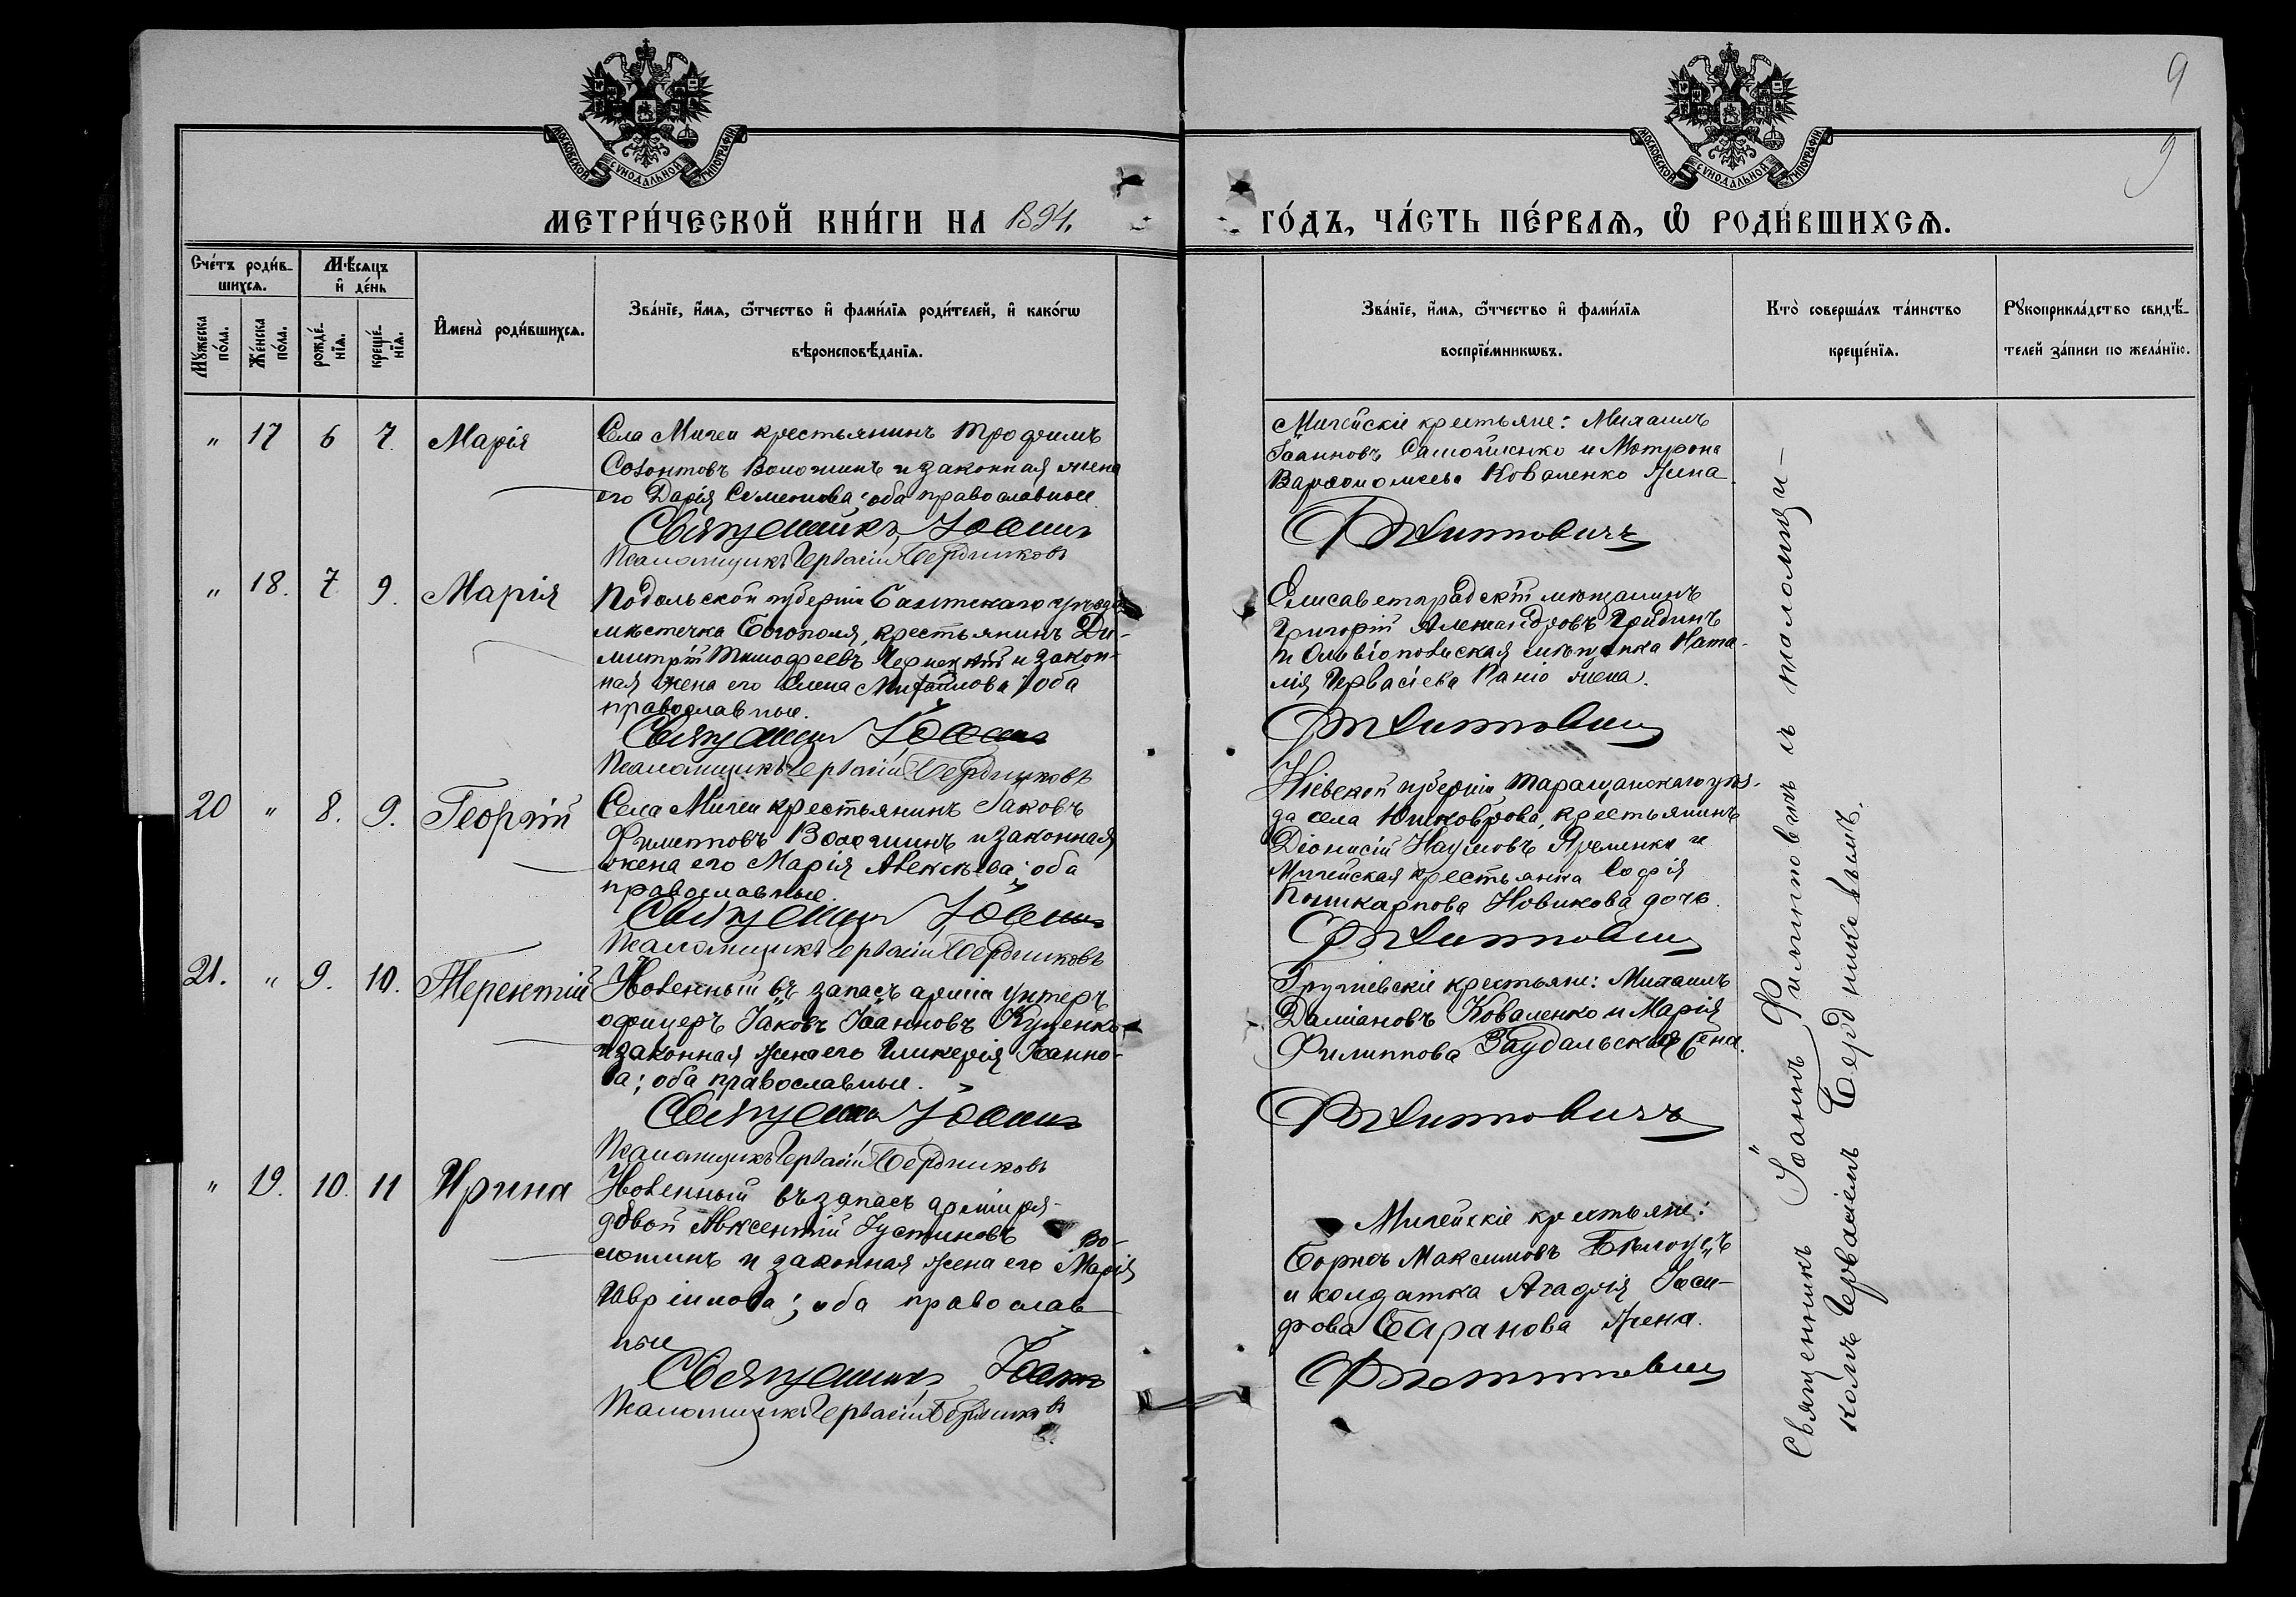 9
9
МОСКОВСКОЙ СѴНОДАЛЬНОЙ ТИПОГРАФІИ
МОСКОВСКОЙ СѴНОДАЛЬНОЙ ТИПОГРАФІИ
МЕТРИ́ЧЕСКОЙ КНИ́ГИ НА 1894.
ГО́ДЪ, ЧА́СТЬ ПЕ́РВАѦ, Ѽ РОДИ́ВШИХСѦ.
Сче́тъ роди́в-
шихсѧ.
Мѣ́сѧцъ
и҆ де́нь
Мꙋ́жеска по́ла.
Же́нска по́ла.
рожде́-
нїѧ.
креще́-
нїѧ.
И҆мена̀ роди́вшихсѧ.
Зва́нїе, и҆́мѧ, ѻ҆́тчество и҆ фами́лїѧ роди́телей, и҆ како́гѡ
вѣроисповѣ́данїѧ.
Зва́нїе, и҆́мѧ, ѻ҆́тчество и҆ фами́лїѧ
воспрїе́мникѡвъ.
Кто̀ соверша́лъ та́инство
креще́нїѧ.
Рꙋкоприкла́дство свидѣ́-
телей за́писи по жела́нїю.
" 17 6 7. Марія
Села Мигеи крестьянинъ Трофимъ
Созонтовъ Волошинъ и законная жена
его Дарія Семенова; оба православные
Священникъ Іоаннъ
Псаломщикъ Гервасій Бердниковъ
Мигейскіе крестьяне: Михаилъ
Іоанновъ Самойленко и Мотрона
Варфоломеева Коваленко жена.
Филиповичъ
" 18. 7 9. Марія
Подольской губерніи Балтскаго уѣзда
мѣстечка Богополя, крестьянинъ Ди-
митрій Тимофеевъ Чернецкій и закон-
ная жена его Елена Михайлова; оба
православные.
Священникъ Іоаннъ
Псаломщикъ Гервасій Бердниковъ
Елисаветградскій мѣщанинъ
Григорій Александровъ Гридинъ
и Ольвіопольская мѣщанка Ната-
лія Гервасіева жена.
Филиповичъ
20 " 8. 9. Георгій
Села Мигеи крестьянинъ Іаковъ
Филиповъ Волошинъ и законная
жена его Марія Алексѣева; оба
православные.
Священникъ Іоаннъ
Псаломщикъ Гервасій Бердниковъ
Кіевской губерніи Таращанскаго уѣз-
да села Юшковрова, крестьянинъ
Діонисій Наумовъ Яременко и
Мигейская крестьянка Софія
Поликарпова Новикова дочь.
Филиповичъ
21. " 9. 10. Терентій
Уволенный въ запасъ арміи унтеръ
офицеръ Іаковъ Іоанновъ Куценко
и законная жена его Гликерія Іоанно-
ва; оба православные.
Священникъ Іоаннъ
Псаломщикъ Гервасій Бердниковъ
Грушевскіе крестьяне: Михаилъ
Даміановъ Коваленко и Марія
Филиппова жена.
Филиповичъ
" 19. 10. 11 Ирина
Уволенный въ запасъ арміи ря-
довой Авксентій Іустиновъ Во-
лошинъ и законная жена его Марія
Гавріилова; оба православ
ные
Священникъ Іоаннъ
Псаломщикъ Гервасій Бердниковъ
Мигейскіе крестьяне:
Борисъ Максимовъ Бѣлоусъ
и солдатка Агафія Іоси-
фова Баранова жена.
Филиповичъ
Священникъ Іоаннъ Филиповичъ съ псаломщи-
комъ Гервасіемъ Бердниковымъ.